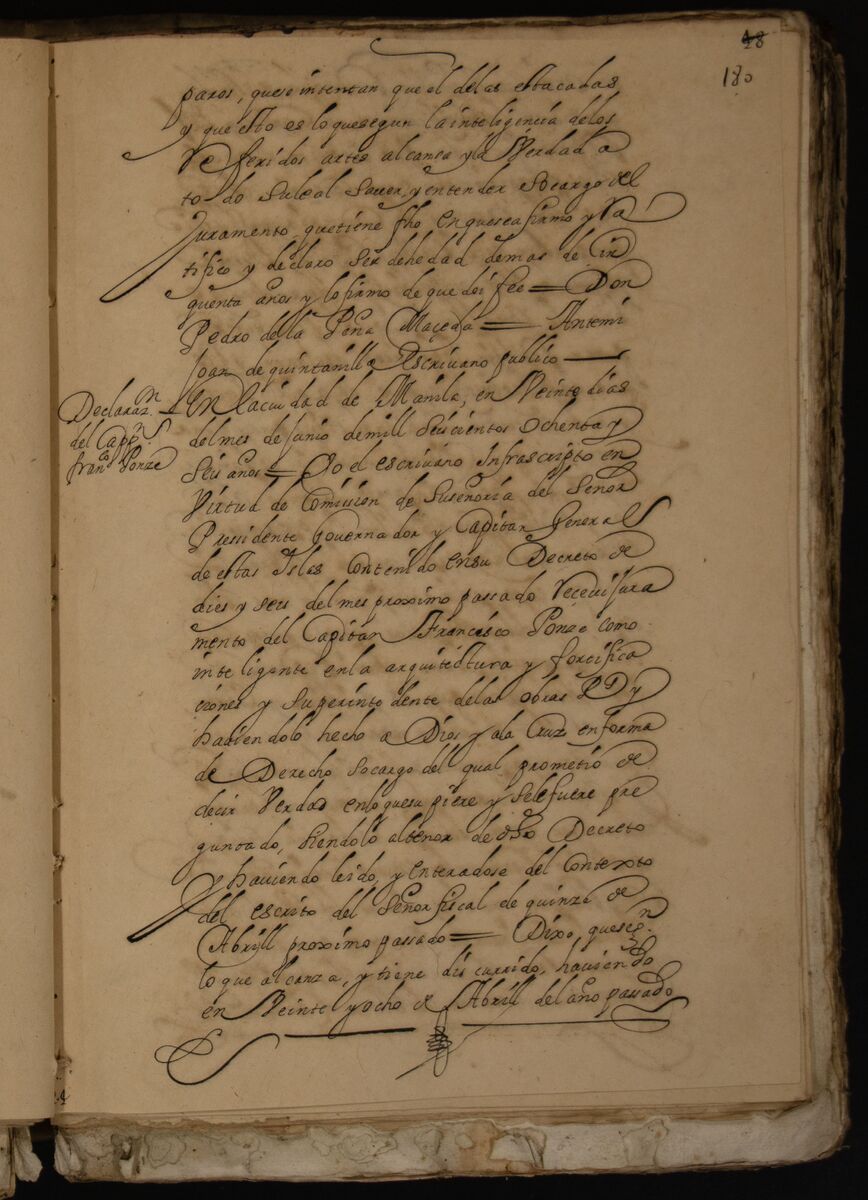 48
180
paros, quese intentan que el delas estacadas
y que esto es loquesegun la inteligencia delos
Referidos artes alcansa yla Verdad a
todo suleal saver, y entender socargo del
Juramento quetiene fho enqueseafirmo y Ra
tifico y declaro ser dehedad demas de Cin
quenta años y lo firmo de que doi fee = Don
Pedro dela Peña Maçeda = Antemi
Joan de quintanilla Escrivano publico
Declaraz.n
del Capp.n
fran.co Ponze
En laciudad de Manila, en Veinte dias
del mes de Junio demill Seiscientos ochenta y
Seis años = Yo el escrivano Infrascripto en
Virtud de Comission de Suseñoria del Señor
Pressidente Governador y Capitan General
de estas Islas Contenido ensu Decreto de
dies y seis del mes proximo passado ReceviJura
mento del Capitan Francisco Ponze como
inteligente enla arquitectura y fortifica
ciones y Superintendente delas obras Rs y
haviendolo hecho a Dios y ala Cruz enforma
de Derecho socargo del qual prometio de
decir Verdad enloquesupiere y selefuere pre
guntado, siendolo altenor de dho Decreto
y haviendo leido, y enteradose del Contexto
del escrito del Señor fiscal de quinze de
Abrill proximo passado = Dixo, queseg.n
lo que alcanza, y tiene discurrido, haviendo
en Veinte y ocho de Abrill del año passado